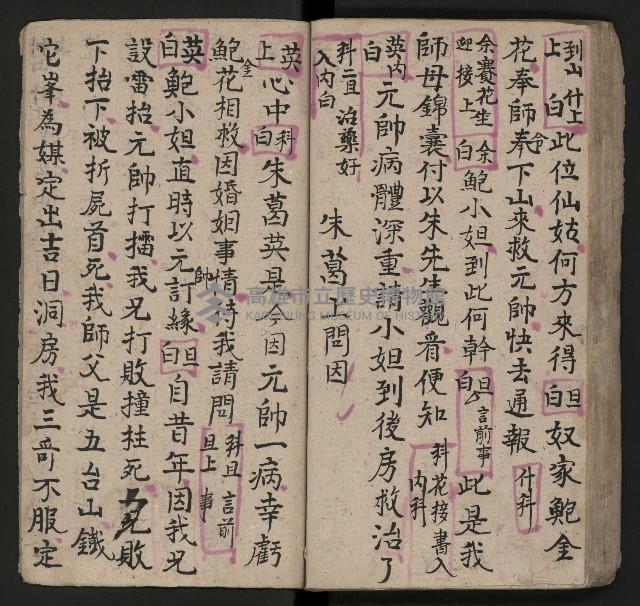 到山 什上
上 白 此位仙姑何方來得 旦白 奴家鮑金
花奉師奉令下山來救元帥快去通報 什科
余賽花坐
迎接上 余白 鮑小姐到此何幹 旦白 言前事 此是我
師母錦囊付以朱先生觀看便知 科花接書入內科
英內白 元帥病體深重請小姐到後房救治了
科 旦 治藥好
入內白 朱葛英問因
英上 心中 科白 朱葛英是 因元帥一病幸虧
鮑金花相救因婚姻事情待我請問 科旦言前
旦上 事
英白 鮑小姐直時以元帥訂緣 旦白 自昔年因我兄
設雷抬元帥打擂我兄打敗撞柱死兄敗
下抬下被折屍首死我師父是五台山鐵
它峯為媒定出吉日洞房我三哥不服定
高雄市立歷史博物館
KAOHSIUNG MUSEUM OF HISTORY